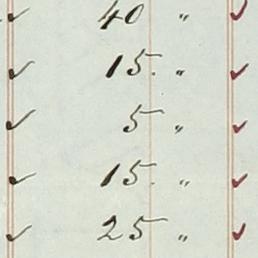 ✓ 40 " ✓
✓ 15. " ✓
✓ 5 " ✓
✓ 15. " ✓
✓ 25 " ✓